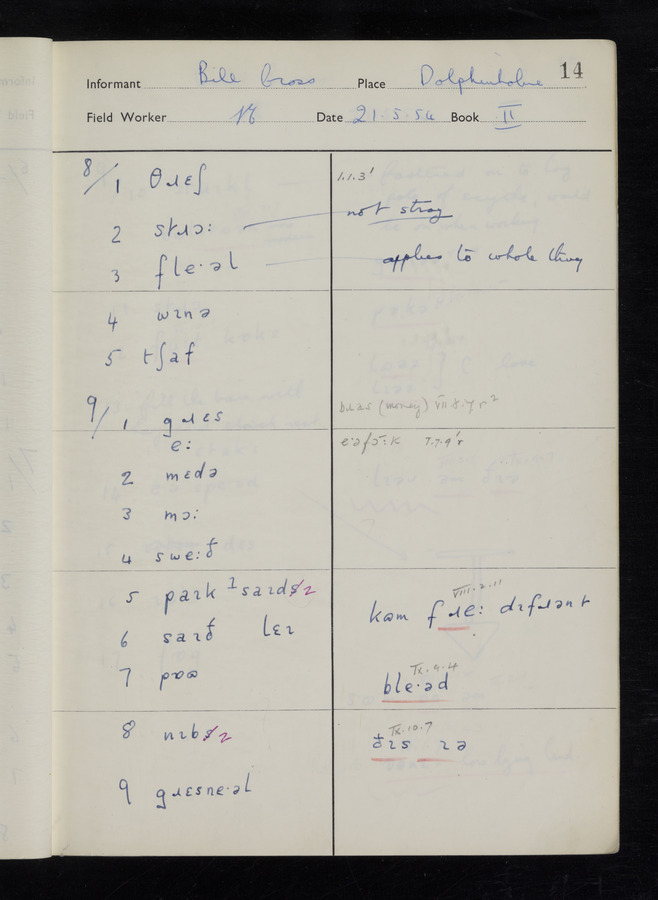 Informant Bill Cross Place Dolphinholme 14
Field Worker Date 21.5.54 Book II
8/1 θɹɛʃ 1.1.3'
2 stɹɔ: not stray
3 fle·əl applies to whole thing
4 wɪnə
5 tʃaf
9/1 gɹɛs bɹas (money) VII 8.7 r²
e: eəfɔ:k 1.7.9'r
2 mɛdə
3 mɔ:
4 swe:ð
5 park ¹saɪdz kəm fɹe: dɪfɹənt VIII.2.11
6 saɪð lɛɪ
7 pʊə ble·əd IX.4.4
8 nɪbz ðɪs ɪə IX.10.7
9 gɹɛsne·əl